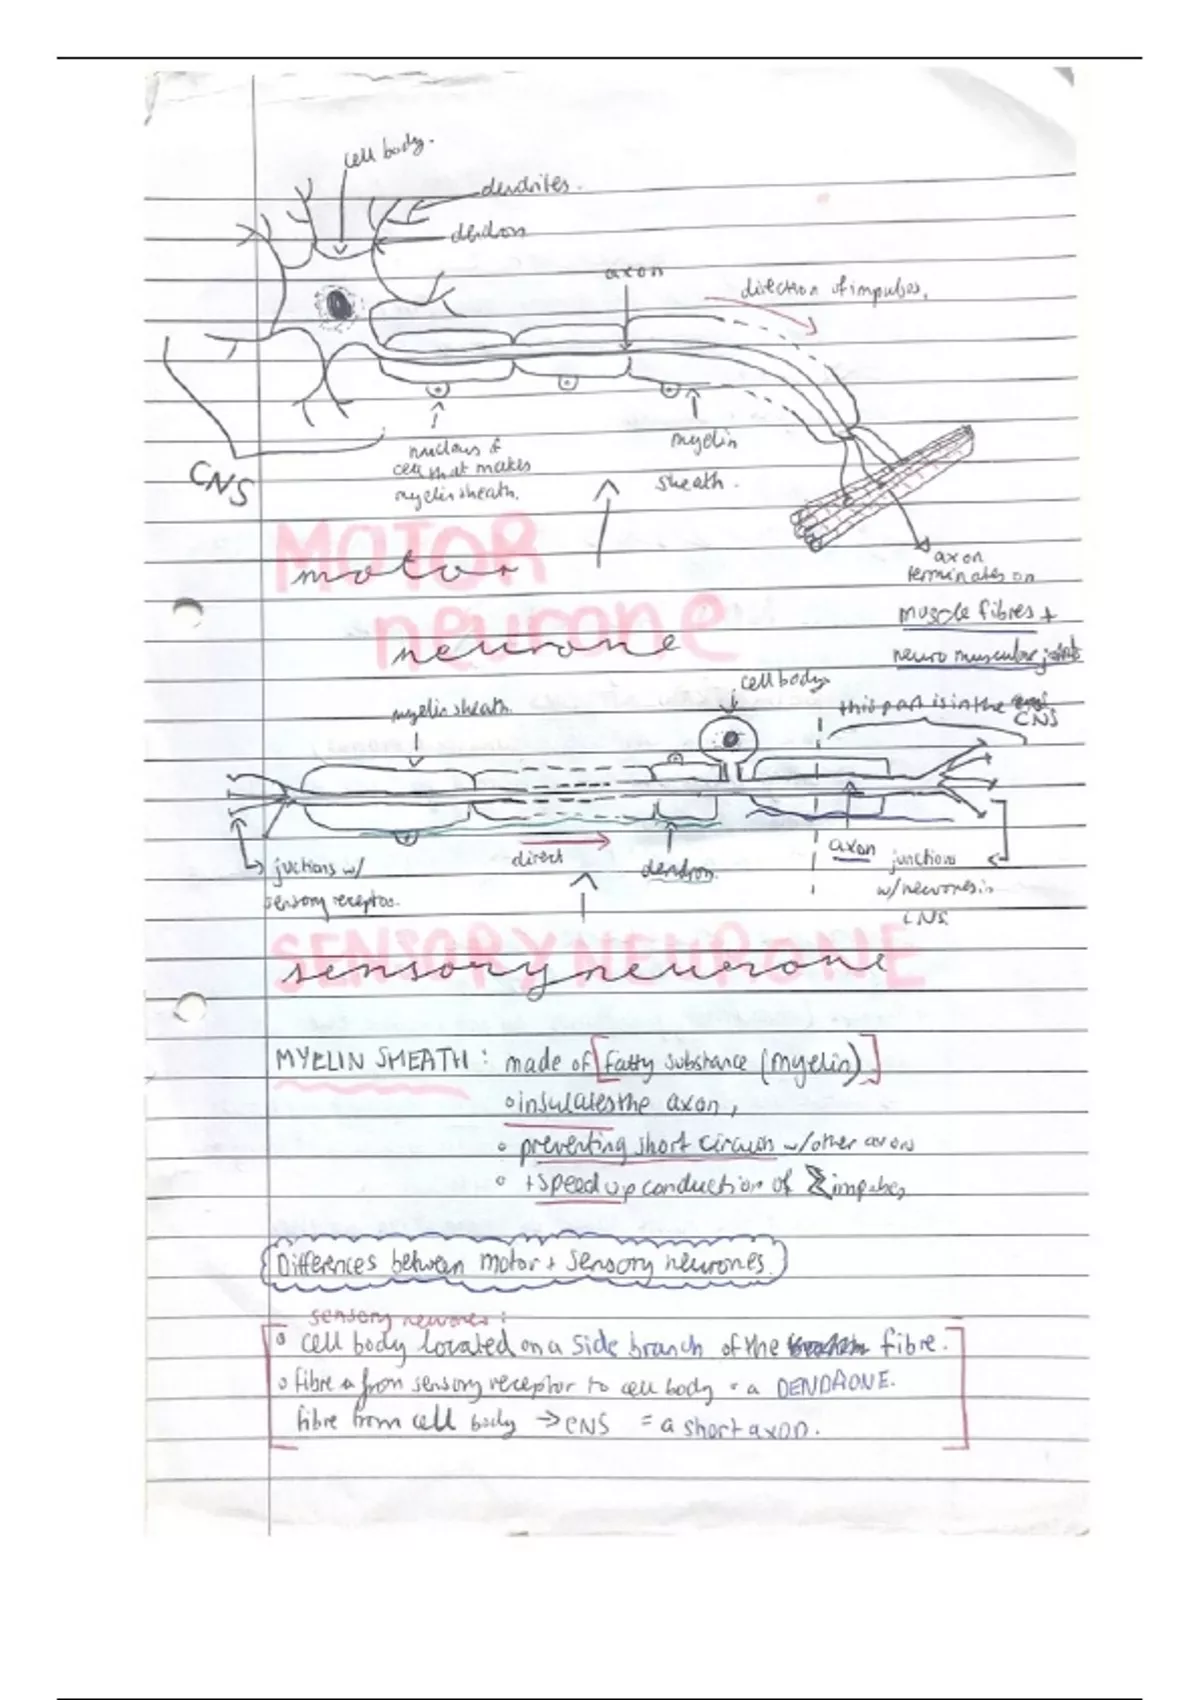 cell body.
dendrites.
dendron
axon
direction of impulses,
CNS
nucleus of
cell that makes
myelin sheath.
myelin
sheath.
MOTOR
motor
neurone
neurone
axon
terminates on
muscle fibres +
neuro muscular joints
cell body
this part is in the
CNS
myelin sheath.
junctions w/
sensory receptor.
direct
dendron.
axon
junctions
w/ neurones in
CNS
SENSORY NEURONE
sensory neurone
MYELIN SHEATH: made of [fatty substance (myelin)]
• insulates the axon,
• preventing short circuits w/ other axons
• + speed up conduction of impulses
Differences between motor + sensory neurones.
sensory neurones:
• cell body located on a side branch of the fibre.
• fibre from sensory receptor to cell body = a DENDRONE.
fibre from cell body → CNS = a short axon.